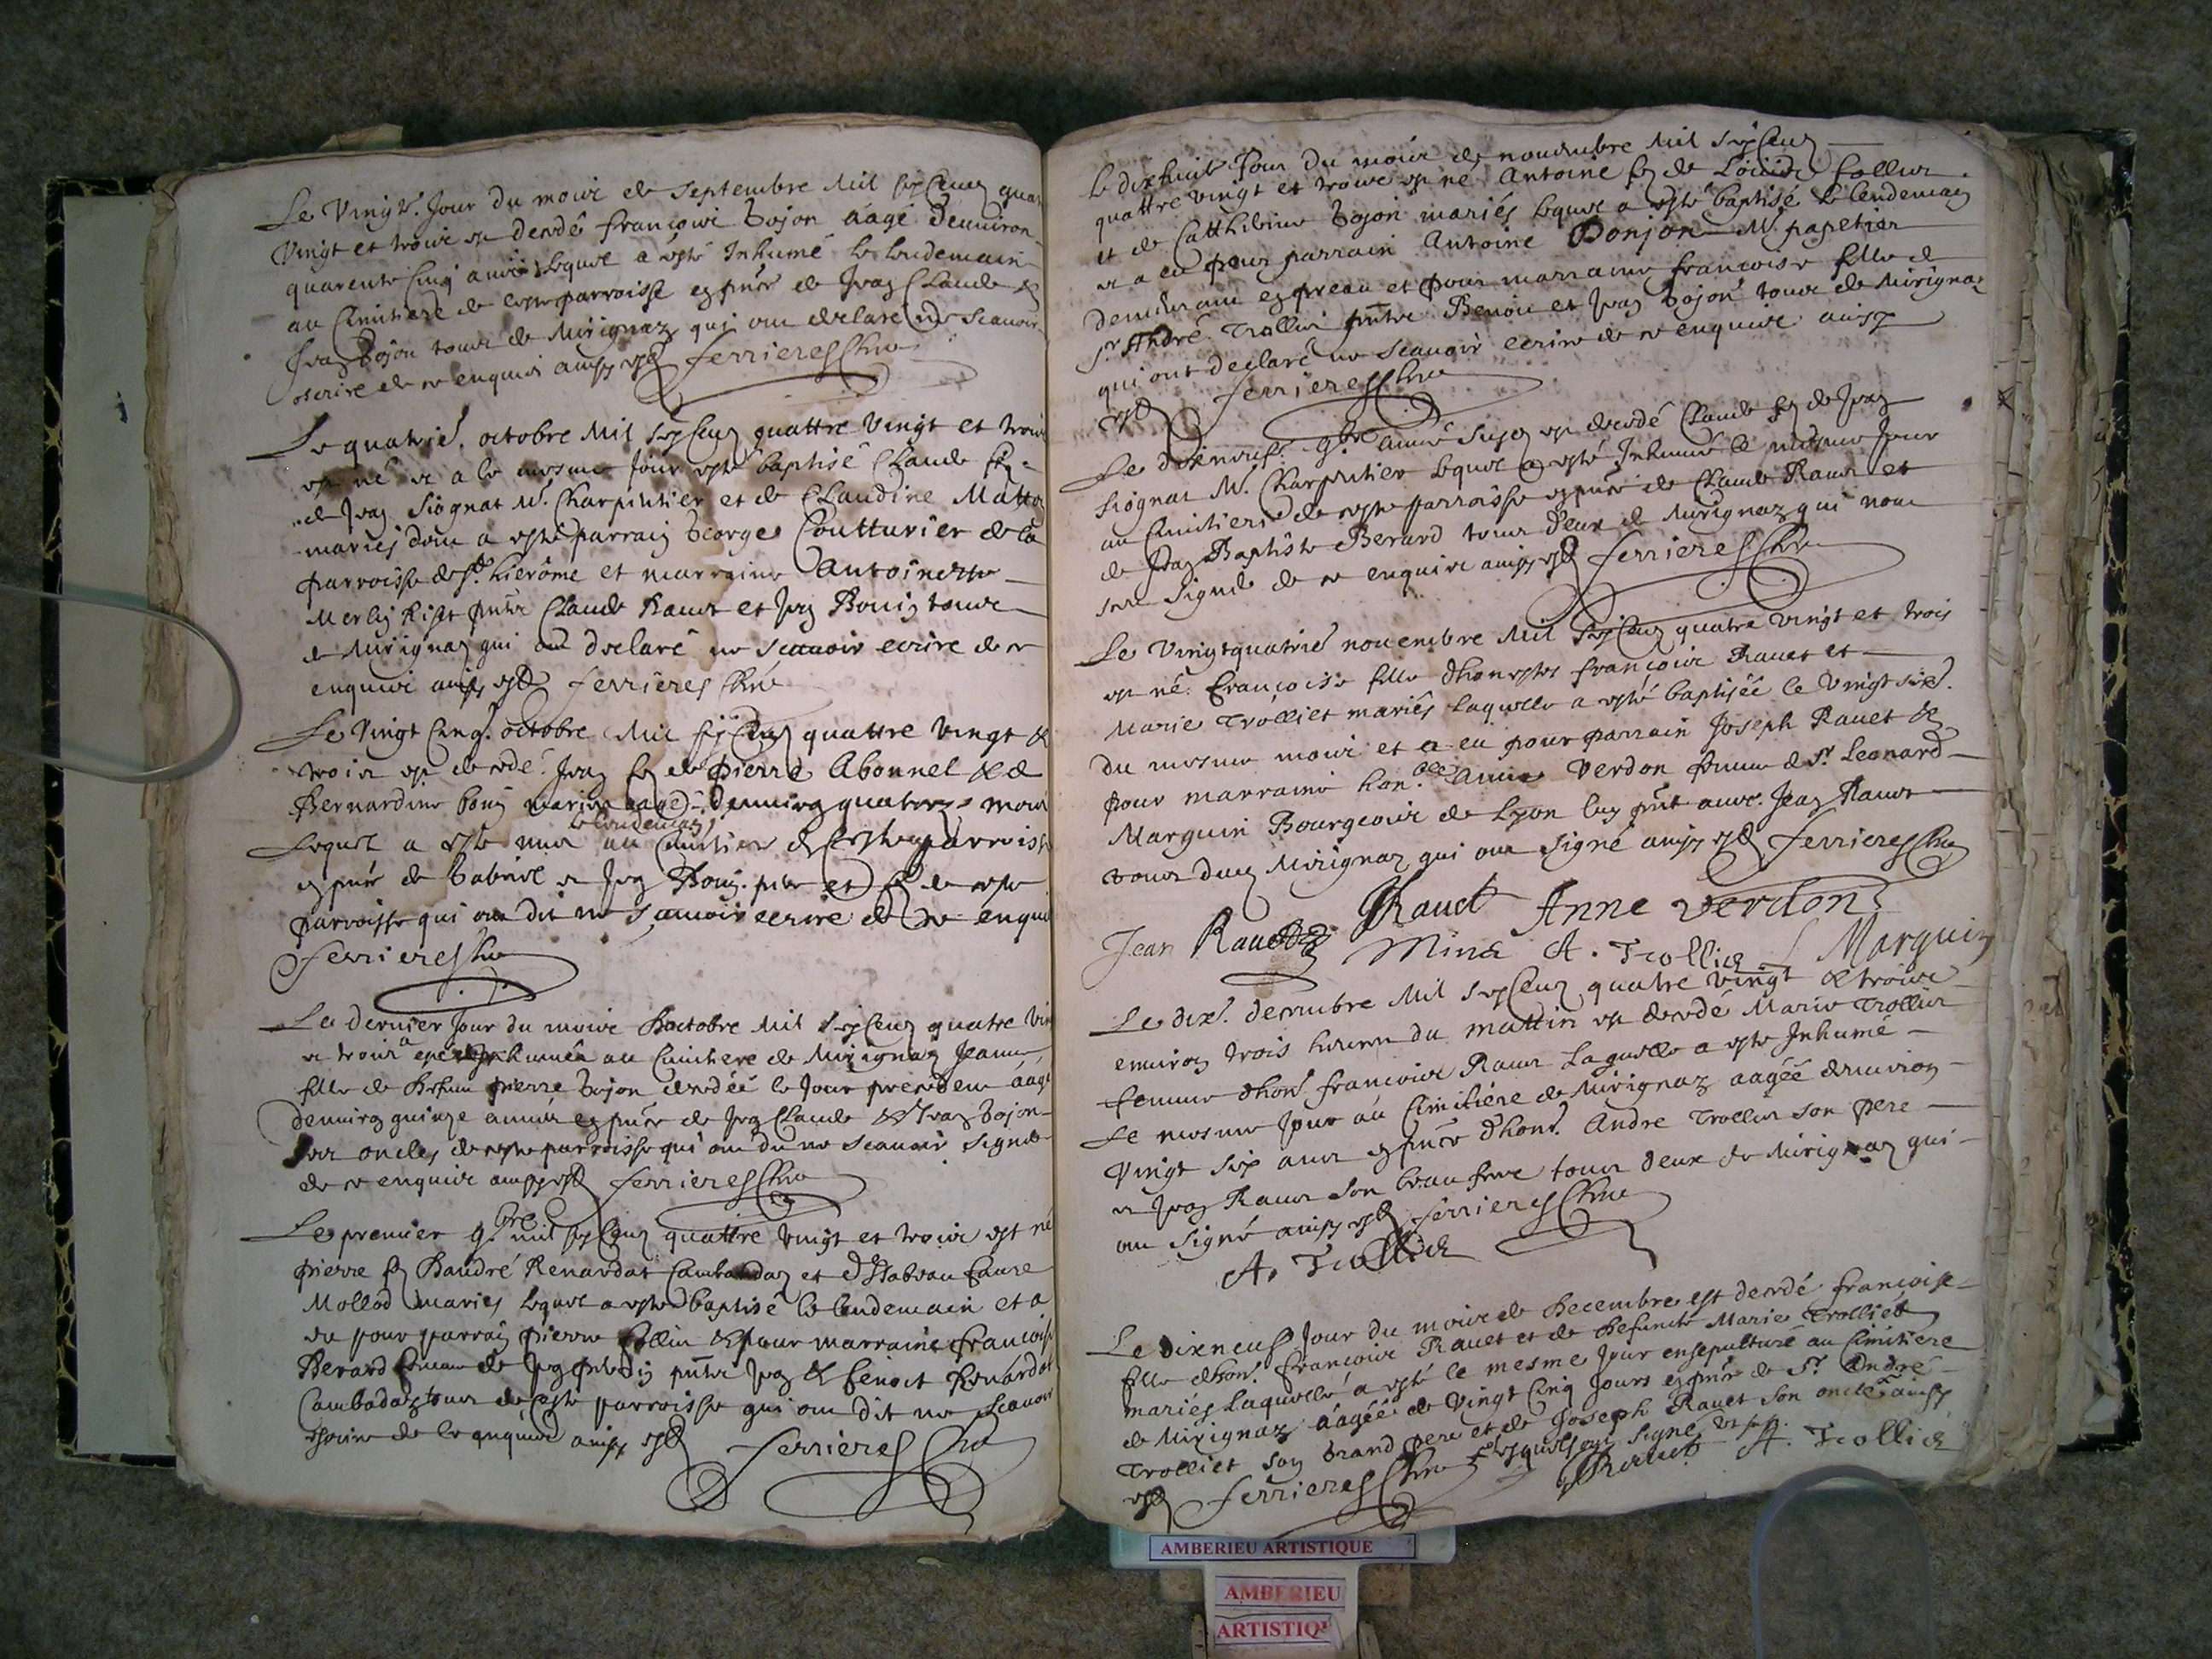 Le Vingt. Jour du mois de septembre Mil six Cens quat
Vingt et trois est decedé françois Bojon áagé denuiron
quarente Cinq années lequel a esté Inhumé le lendemain
au Cimitiere de ceste parroisse en pnce de Jean Claude &
Jean Bojon tous de Mirignaz qui ont declaré ne scauoir
escrire de ce enquis ainsy est ferrieres Cure
Le quatrie. octobre Mil six Cens quattre Vingt et trois
est né et a le mesme Jour esté baptisé Claude fils
de Jean Siognat Me. Charpentier et de Claudine
mariés dont a esté parrain George Coutturier de la
parroisse de St. hierôme et marraine Antoinette
Merlin pnts Claude Rauet et Jean Bouis tous
de Mirignaz qui ont declaré ne scauoir ecrire de ce
enquis ainsy est ferrieres Cure
Le Vingt Cinq. octobre Mil six Cens quattre Vingt &
trois est decedé Jean fils de pierre Abonnel & de
Bernardine mariés aagé denuiron quatorze mois
le lendemain
Lequel a esté mis au Cimitiere de ceste parroisse
en pnce de Gabriel et Jean et de ceste
parroisse qui ont dit ne scauoir ecrire de ce enquis
ferrieres Cure
Le dernier Jour du mois d'octobre Mil six Cens quatre Vin
et trois a esté Inhumée au Cimitiere de Mirignaz Jeanne
fille de deffunt pierre Bojon decedée le Jour precedent áagé
denuiron quinze années en pnce de Jean Claude & Jean Bojon
ses oncles de ceste parroisse qui ont dit ne scauoir signer
de ce enquis ainsy est ferrieres Cure
Le premier 9bre mil six Cens quattre Vingt et trois est né
pierre fils d'André Renardat Cambadaz et d'Ysabeau Caure
Mollod mariés lequel a esté baptisé le lendemain et a
eu pour parrain pierre Collin & pour marraine francoise
Berard femme de Jean pnts Jean & benoit Renardat
Cambadaz tous de ceste parroisse qui ont dit ne Scauoir
escrire de ce enquis ainsy est ferrieres Cure
Le dixhuit. Jour du mois de nouembre Mil six Cens
quattre vingt et trois est né Antoine fils de Collin
et de Catherine Bojon mariés lequel a esté baptisé le lendemain
et a eu pour parrain Antoine Donjon Me. papetier
demeurant en preau et pour marraine francoise fille de
sr. André Trolliet pnts Benoit et Jean Bojon tous de Mirignaz
qui ont declaré ne scauoir ecrire de ce enquis ainsy
est ferrieres Cure
Le dixneuf. 9bre année susd. est decedé Claude fils de Jean
Siognat Me. Charpentier lequel a esté Inhumé le mesme Jour
au Cimitiere de ceste parroisse en pnce de Claude Rauet et
de Jean Baptiste Berard tous deux de Mirignaz qui n'ont
sceu signer de ce enquis ainsy est ferrieres Cure
Le Vingtquatrie nouembre Mil six Cens quatre Vingt et trois
est né. francoise fille d'honestes francois Rauet et
Marie Trolliet mariés laquelle a esté baptisée le Vingt sixe.
du mesme mois et a eu pour parrain Joseph Rauet &
pour marraine hon.ble Anne Verdon femme de sr. Leonard
Marguin Bourgeois de Lyon pnt auec Jean Rauet
tous dud. Mirignaz qui ont signé ainsy est ferrieres Cure
JRauet Anne verdon
Jean Rauet Mina A. Trolliet L Marguin
Le dixe. decembre Mil six Cens quatre Vingt & trois
enuiron trois heures du mattin est decedé Marie Trolliet
femme d'hont. francois Rauet Laquelle a esté Inhumé
Le mesme Jour au Cimitiere de Mirignaz aagée denuiron
Vingt six ans en pnce d'hont. André Trolliet son pere
et Jean Rauet son beau frere tous deux de Mirignaz qui
ont signé ainsy est ferrieres Cure
A. Trolliet
Le dixneuf Jour du mois de decembre est decedé francoise
fille d'hont. francois Rauet et de deffuncte Marie Trolliet
mariés Laquelle a esté le mesme Jour ensepulturé au Cimitiere
de Mirignaz áagée de Vingt Cinq Jours en pnce de Sr. André
Trolliet son Grand pere et de Joseph Rauet son oncle ainsy
est ferrieres Cure lesquels ont signé
JRauet A. Trolliet
AMBERIEU ARTISTIQUE
AMBERIEU
ARTISTIQU